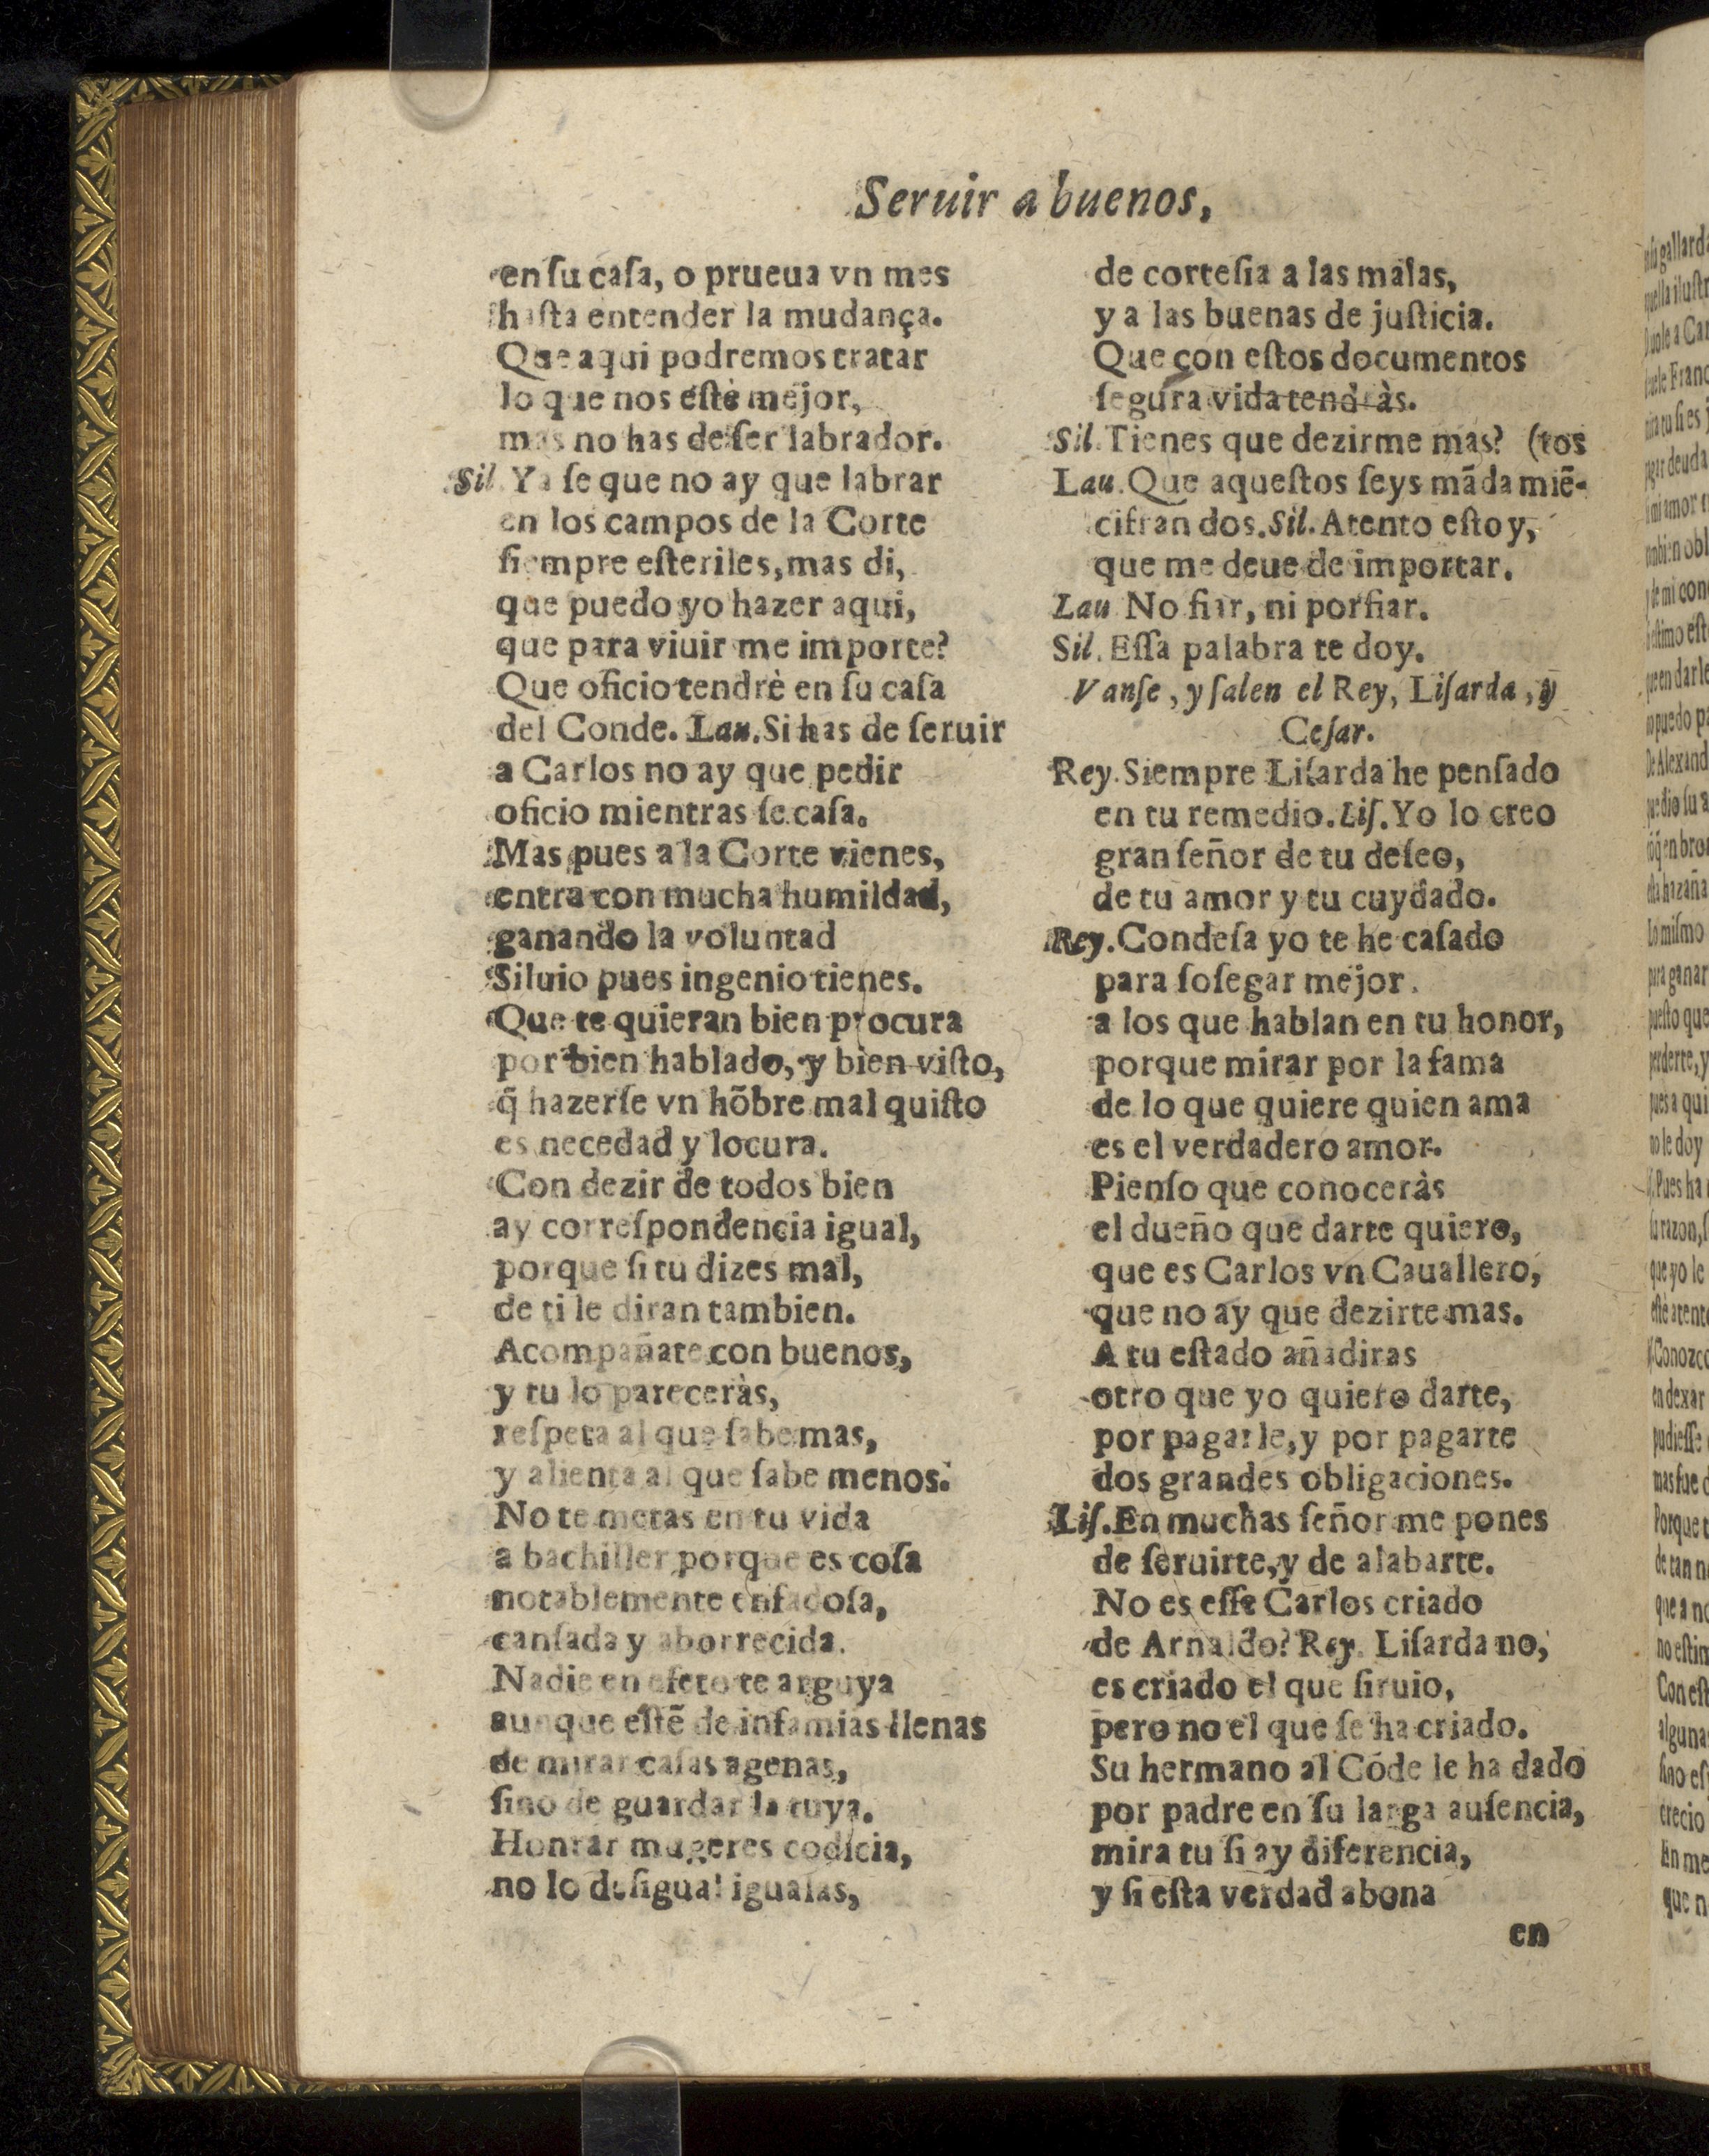 Seruir a buenos,
en ſu caſa, o prueua vn mes
haſta entender la mudança.
Que aqui podremos tratar
lo que nos eſtè mejor,
mas no has de ſer labrador.
Sil. Ya ſe que no ay que labrar
en los campos de la Corte
ſiempre eſteriles, mas di,
que puedo yo hazer aqui,
que para viuir me importe?
Que oficio tendrè en ſu caſa
del Conde. Lau. Si has de ſeruir
a Carlos no ay que pedir
oficio mientras ſe caſa.
Mas pues a la Corte vienes,
entra con mucha humildad,
ganando la voluntad
Siluio pues ingenio tienes.
Que te quieran bien procura
por bien hablado, y bien viſto,
q̃ hazerſe vn hõbre mal quiſto
es necedad y locura.
Con dezir de todos bien
ay correſpondencia igual,
porque ſi tu dizes mal,
de ti le diran tambien.
Acompañate con buenos,
y tu lo pareceràs,
reſpeta al que ſabe mas,
y alienta al que ſabe menos.
No te metas en tu vida
a bachiller porque es coſa
notablemente enfadoſa,
canſada y aborrecida.
Nadie en efeto te arguya
aunque eſtẽ de infamias llenas
de mirar caſas agenas,
ſino de guardar la tuya.
Honrar mugeres codicia,
no lo deſigual igualas,
de corteſia a las malas,
y a las buenas de juſticia.
Que con eſtos documentos
ſegura vida tendràs.
Sil. Tienes que dezirme mas? (tos
Lau. Que aqueſtos ſeys mãda miẽ-
cifran dos. Sil. Atento eſtoy,
que me deue de importar.
Lau No fiar, ni porfiar.
Sil. Eſſa palabra te doy.
Vanſe, y ſalen el Rey, Liſarda, y
Ceſar.
Rey. Siempre Liſarda he penſado
en tu remedio. Liſ. Yo lo creo
gran ſeñor de tu deſeo,
de tu amor y tu cuydado.
Rey. Condeſa yo te he caſado
para ſoſegar mejor
a los que hablan en tu honor,
porque mirar por la fama
de lo que quiere quien ama
es el verdadero amor.
Pienſo que conoceràs
el dueño que darte quiero,
que es Carlos vn Cauallero,
que no ay que dezirte mas.
A tu eſtado añadiras
otro que yo quiero darte,
por pagarle, y por pagarte
dos grandes obligaciones.
Liſ. En muchas ſeñor me pones
de ſeruirte, y de alabarte.
No es eſſe Carlos criado
de Arnaldo? Rey. Liſarda no,
es criado el que ſiruio,
pero no el que ſe ha criado.
Su hermano al Códe le ha dado
por padre en ſu larga auſencia,
mira tu ſi ay diferencia,
y ſi eſta verdad abona
en